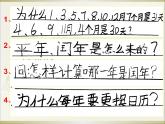 1. 为什么1、3、5、7、8、10、12月7个月是31天？
4、6、9、11月，4个月是30天？
2. 平年、闰年是怎么来的？
3. 问怎样计算哪一年是闰年？
4. 为什么每年要更换日历？